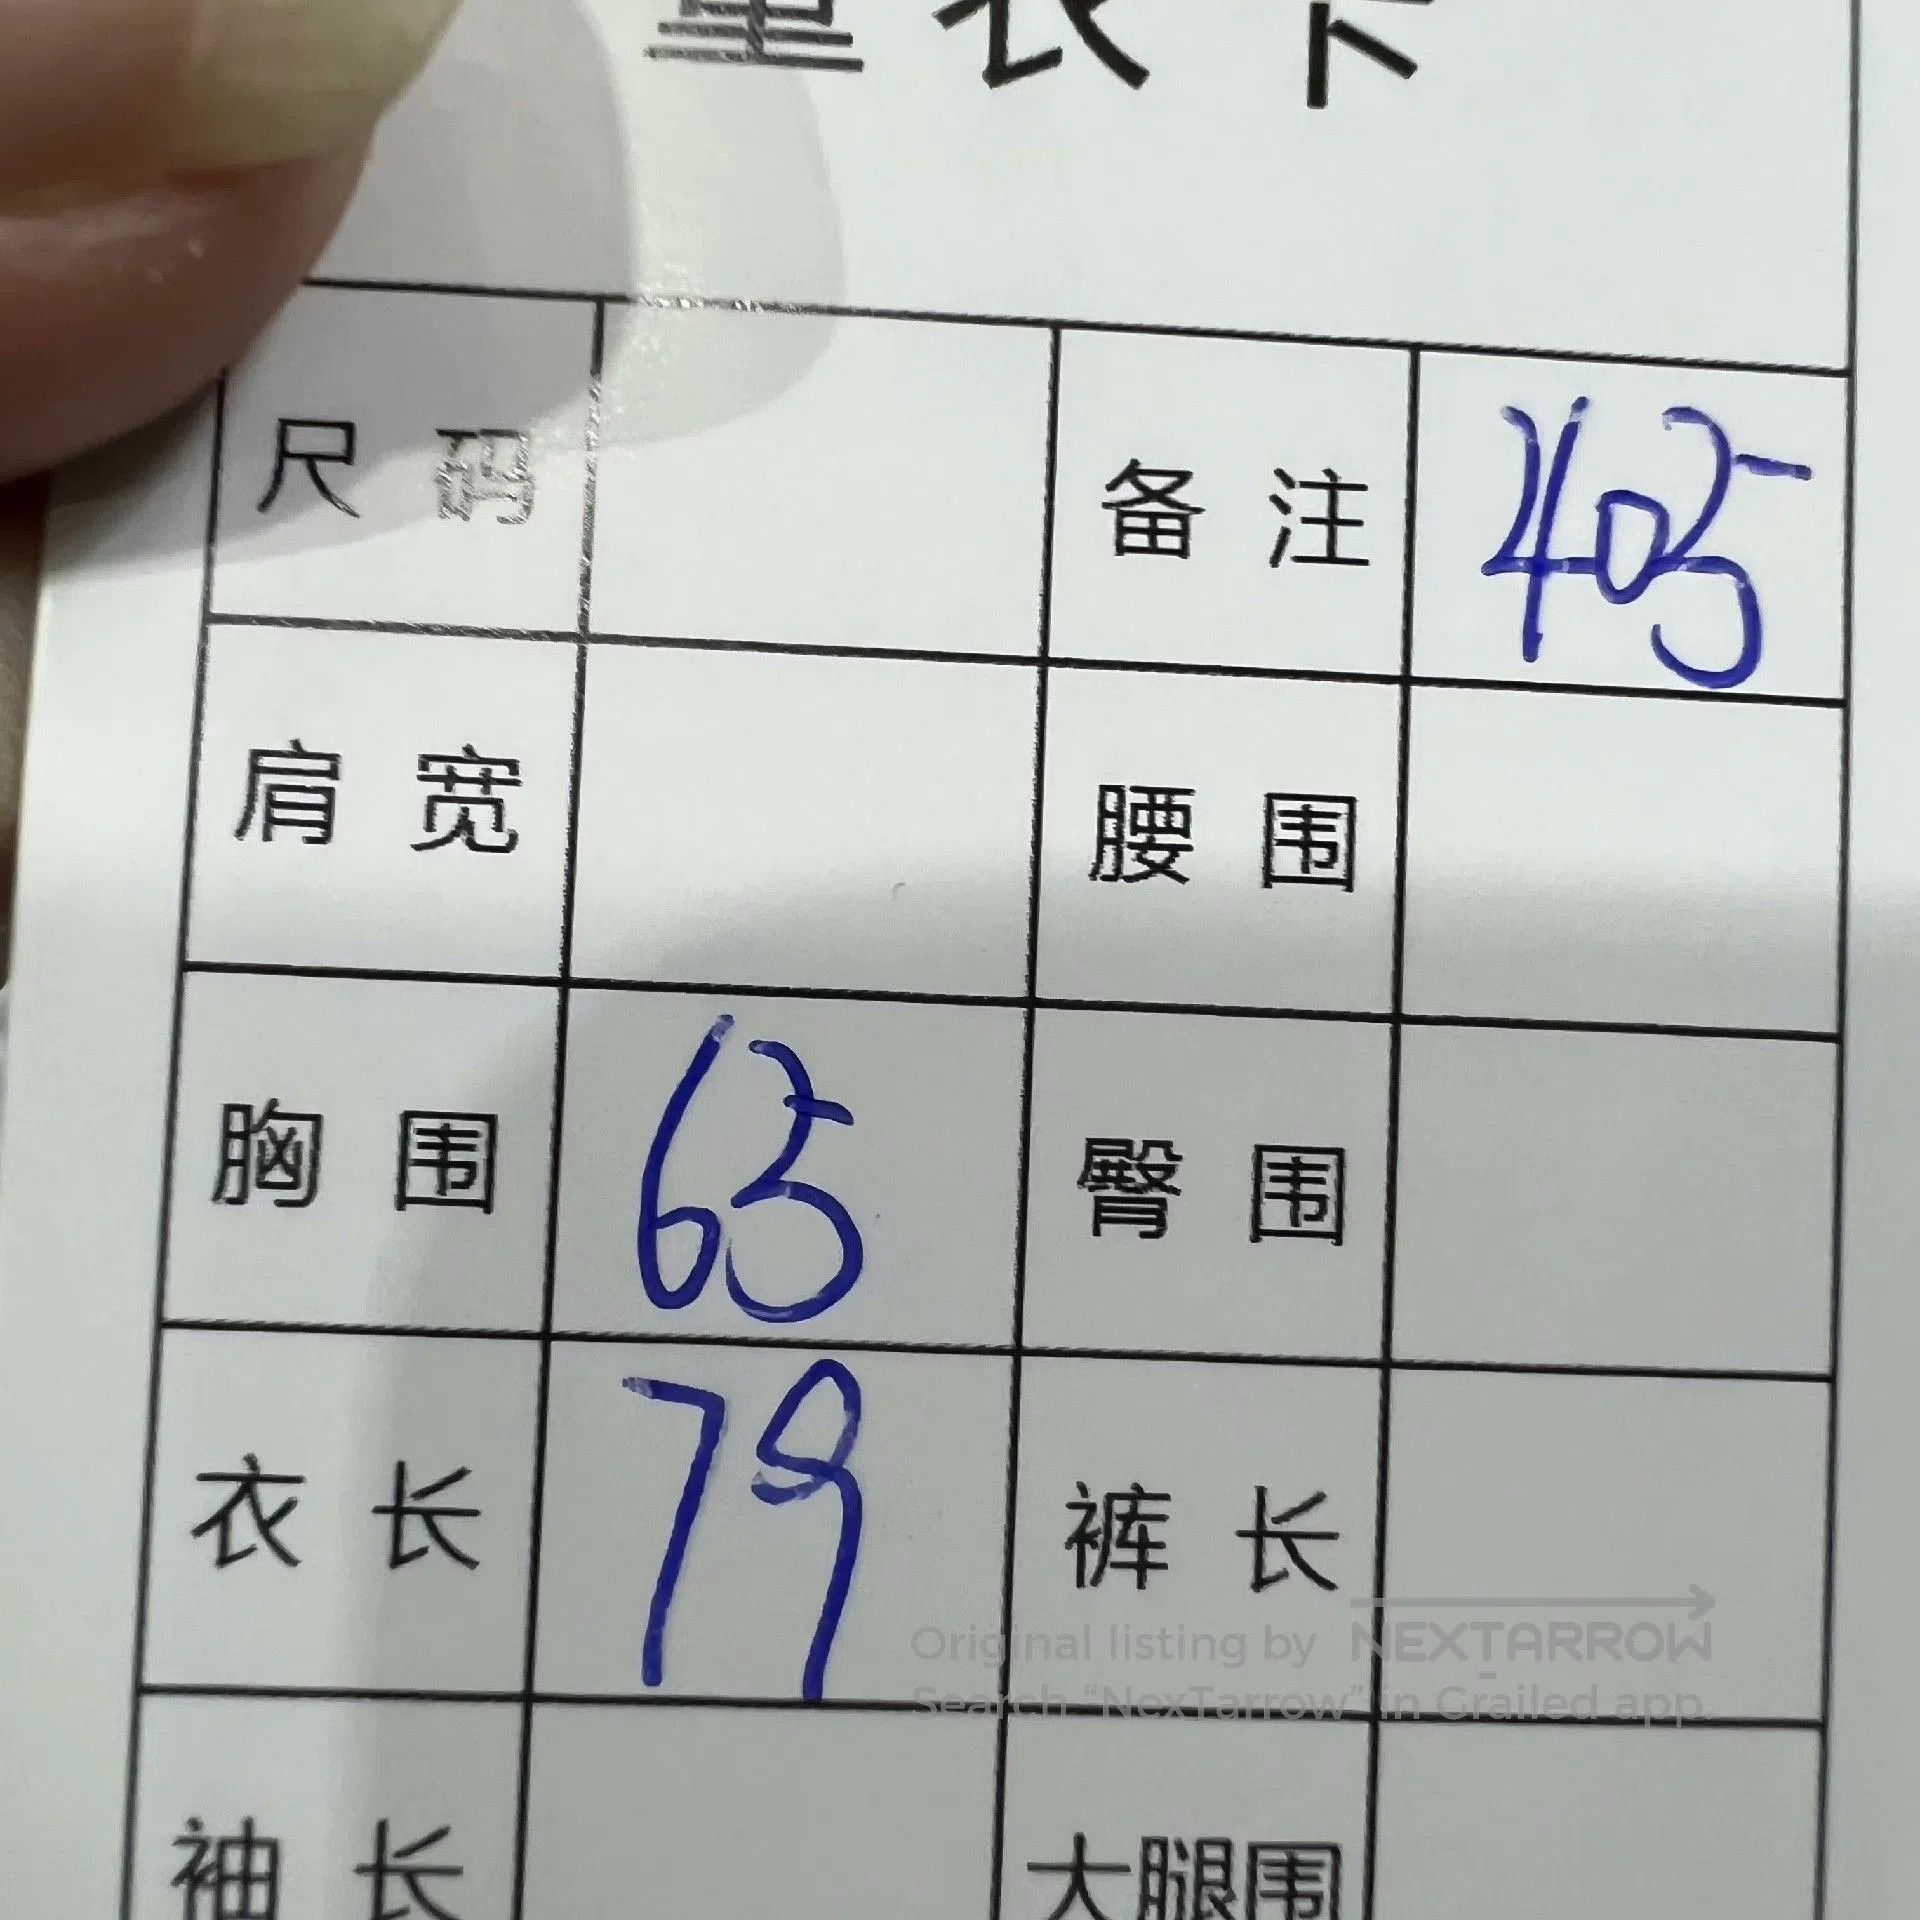 量衣卡
尺码 备注 405
肩宽 腰围
胸围 65 臀围
衣长 79 裤长
Original listing by NEXTARROW
Search “NexTarrow” in Grailed app.
袖长 大腿围